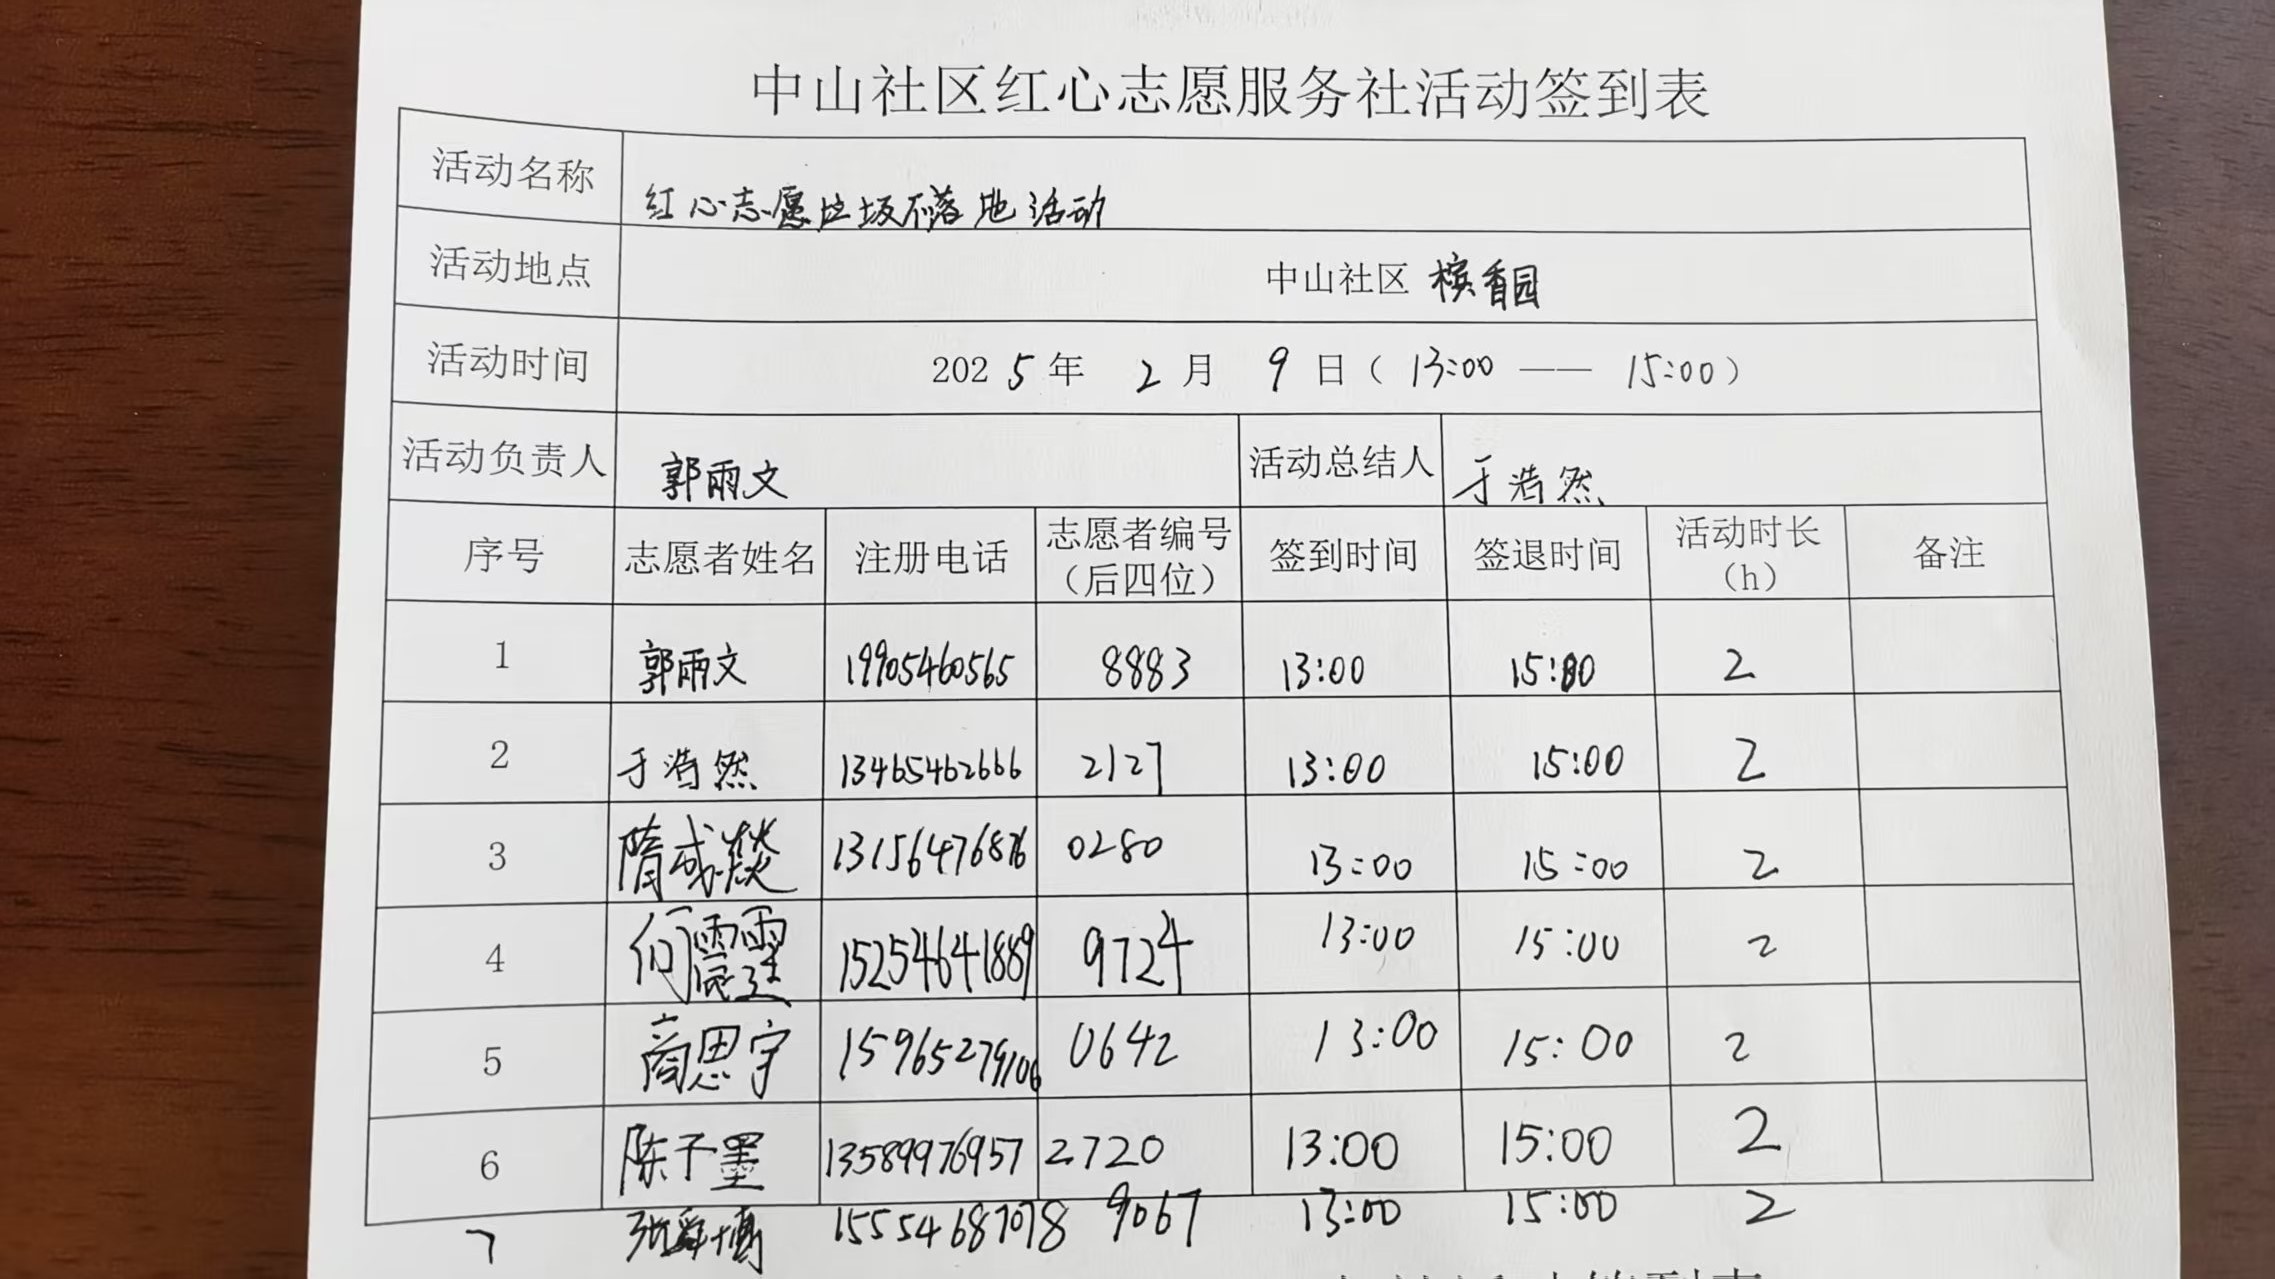 中山社区红心志愿服务社活动签到表
活动名称 红心志愿垃圾不落地活动
活动地点 中山社区 槟香园
活动时间 2025年 2月 9日（13:00 —— 15:00）
活动负责人 郭雨文 活动总结人 于浩然
序号 志愿者姓名 注册电话 志愿者编号（后四位） 签到时间 签退时间 活动时长（h） 备注
1 郭雨文 19905460565 8883 13:00 15:00 2
2 于浩然 13465462666 2127 13:00 15:00 2
3 隋彧燚 13156476876 0280 13:00 15:00 2
4 何震霆 15254641889 9724 13:00 15:00 2
5 商思宇 15965279106 0642 13:00 15:00 2
6 陈予墨 13589976957 2720 13:00 15:00 2
7 张舜博 15554687078 9067 13:00 15:00 2